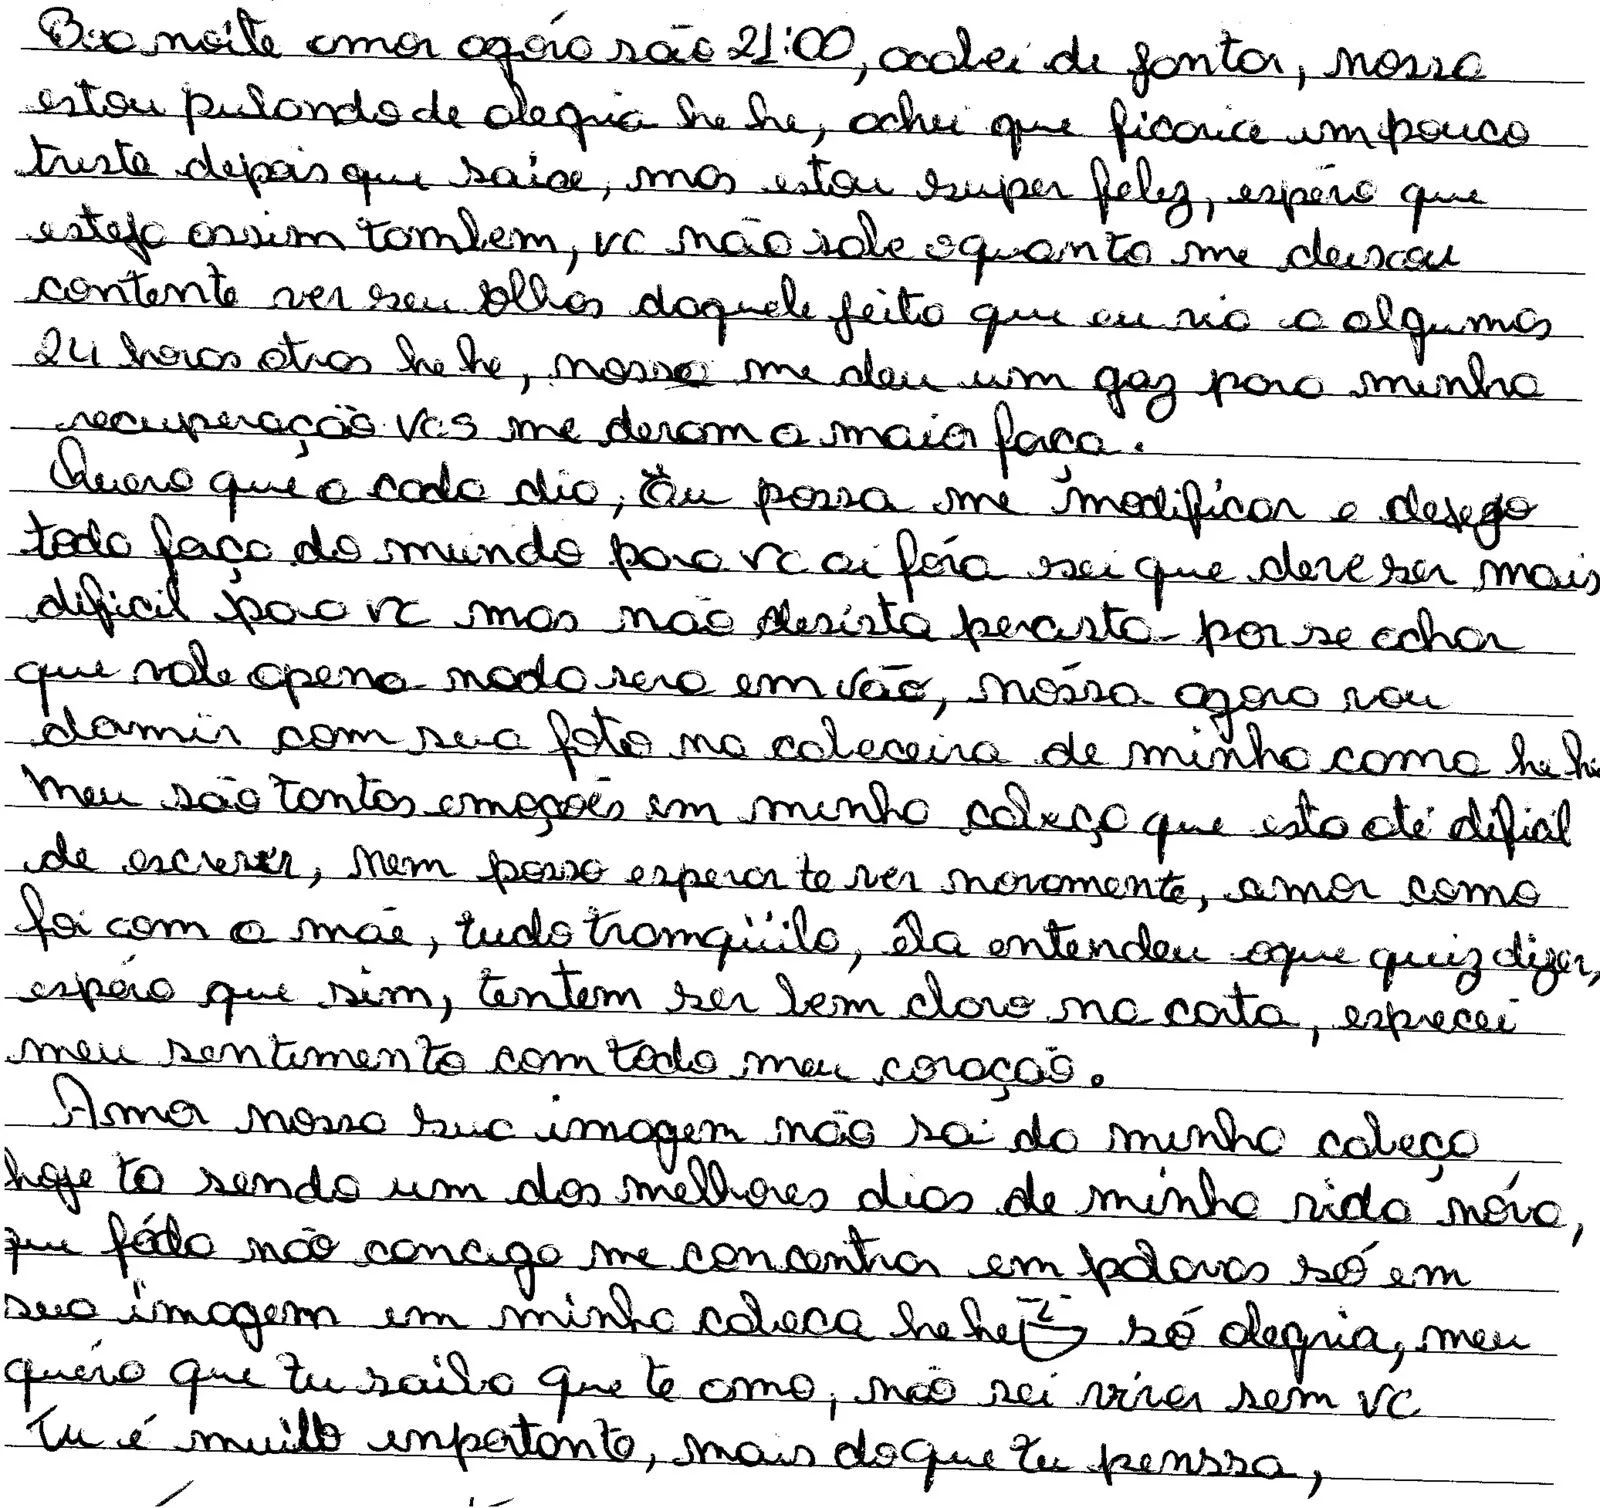 Boa noite amor agóra são 21:00, acabei de jantar, nossa
estou pulando de alegria he he, achei que ficaria um pouco
triste depois que saise, mas estou super feliz, espéro que
esteja assim tambem, vc não sabe oquanto me deixou
contente ver seu olhos daquele jeito que eu via a algumas
24 horas atras he he, nossa me deu um gaz para minha
recuperação vcs me deram a maior força.
Quero que a cada dia, eu possa me modificar e desejo
toda força do mundo para vc ai fóra sei que deve ser mais
dificil para vc mas não desista percista por se achar
que vale apena nada sera em vão, nóssa agora vou
dormir com sua foto na cabeceira de minha cama he he
Meu são tantas emoções em minha cabeça que esta até dificil
de escrever, nem posso esperar te ver novamente, amor como
foi com a mãe, tudo tramqüilo, éla entendeu oque quiz dizer,
espéro que sim, tentem ser bem claro na carta, esprecei
meu sentimento com todo meu coração.
Amor nossa sua imagem não sai da minha cabeça
hoje ta sendo um dos melhores dias de minha vida nóva,
que fóda não concigo me concentrar em palavras só em
sua imagem em minha cabeca he he só alegria, meu
quéro que tu saiba que te amo, não sei viver sem vc
Tu é muito inportante, mais doque tu penssa,